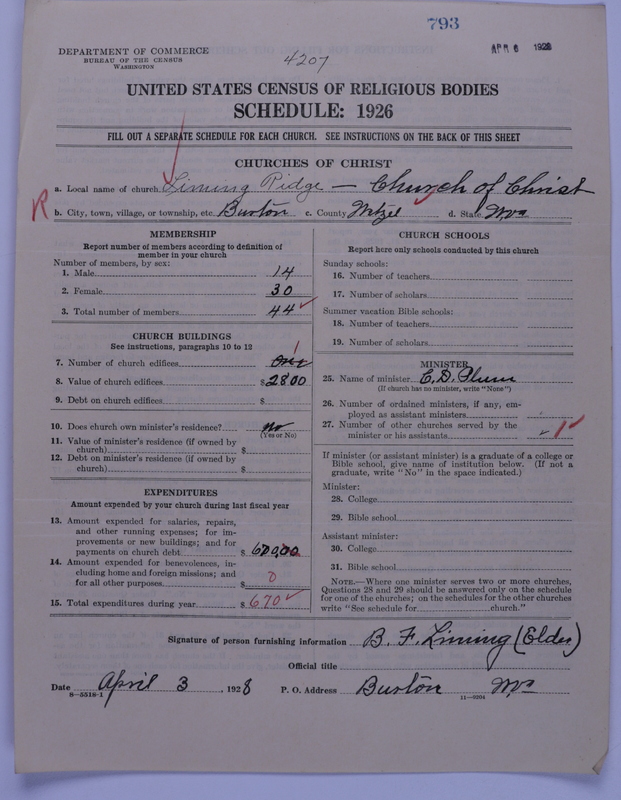 793
APR 6 1928
DEPARTMENT OF COMMERCE
BUREAU OF THE CENSUS
WASHINGTON
4207
UNITED STATES CENSUS OF RELIGIOUS BODIES
SCHEDULE: 1926
FILL OUT A SEPARATE SCHEDULE FOR EACH CHURCH. SEE INSTRUCTIONS ON THE BACK OF THIS SHEET
CHURCHES OF CHRIST
a. Local name of church Liming Ridge — Church of Christ
R b. City, town, village, or township, etc. Burton c. County Wetzel d. State W.Va
MEMBERSHIP
Report number of members according to definition of
member in your church
Number of members, by sex:
1. Male 14
2. Female 30
3. Total number of members 44
CHURCH BUILDINGS
See instructions, paragraphs 10 to 12
7. Number of church edifices One 1
8. Value of church edifices $2800
9. Debt on church edifices $
10. Does church own minister's residence? No
(Yes or No)
11. Value of minister's residence (if owned by
church) $
12. Debt on minister's residence (if owned by
church) $
EXPENDITURES
Amount expended by your church during last fiscal year
13. Amount expended for salaries, repairs,
and other running expenses; for im-
provements or new buildings; and for
payments on church debt $
14. Amount expended for benevolences, in-
cluding home and foreign missions; and
for all other purposes $ 0
15. Total expenditures during year $670
CHURCH SCHOOLS
Report here only schools conducted by this church
Sunday schools:
16. Number of teachers
17. Number of scholars
Summer vacation Bible schools:
18. Number of teachers
19. Number of scholars
MINISTER
25. Name of minister C. D. Plum
(If church has no minister, write "None")
26. Number of ordained ministers, if any, em-
ployed as assistant ministers
27. Number of other churches served by the
minister or his assistants 1
If minister (or assistant minister) is a graduate of a college or
Bible school, give name of institution below. (If not a
graduate, write "No" in the space indicated.)
Minister:
28. College
29. Bible school
Assistant minister:
30. College
31. Bible school
NOTE.—Where one minister serves two or more churches,
Questions 28 and 29 should be answered only on the schedule
for one of the churches; on the schedules for the other churches
write "See schedule for church."
Signature of person furnishing information B. F. Liming (Elder)
Official title
Date April 3, 1928 P. O. Address Burton W.Va
8—5518-1
11—9204